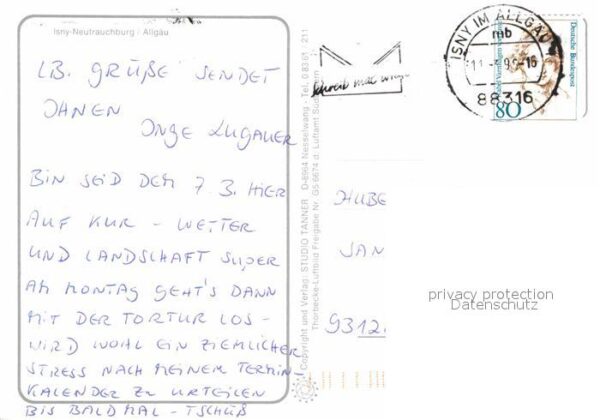 Isny-Neutrauchburg / Allgäu
LB. GRÜßE SENDET
IHNEN
INGE LUGAUER
BIN SEID DEM 7.3. HIER
AUF KUR - WETTER
UND LANDSCHAFT SUPER
AM MONTAG GEHT'S DANN
MIT DER TORTUR LOS -
WIRD WOHL EIN ZIEMLICHER
STRESS NACH MEINEM TERMIN-
KALENDER ZU URTEILEN
BIS BALD MAL - TSCHÜß
Copyright und Verlag: STUDIO TANNER D-8964 Nesselwang · Tel. 0 83 61 - 211
Thorbecke-Luftbild Freigabe Nr. G5/6674 d. Luftamt Südbayern
Schreib mal wieder
ISNY IM ALLGÄU
mb
88316
Deutsche Bundespost
80
HUBE
SAN
9312
privacy protection
Datenschutz